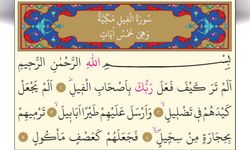 سُورَةُ الْفِيلِ مَكِّيَّةٌ
وَهِيَ خَمْسُ اٰيَاتٍ
بِسْمِ اللّٰهِ الرَّحْمٰنِ الرَّحِيمِ
اَلَمْ تَرَ كَيْفَ فَعَلَ رَبُّكَ بِاَصْحَابِ الْفِيلِ ۝١ اَلَمْ يَجْعَلْ
كَيْدَهُمْ فِي تَضْلِيلٍ ۝٢ وَاَرْسَلَ عَلَيْهِمْ طَيْرًا اَبَابِيلَ ۝٣ تَرْمِيهِمْ
بِحِجَارَةٍ مِنْ سِجِّيلٍ ۝٤ فَجَعَلَهُمْ كَعَصْفٍ مَأْكُولٍ ۝٥